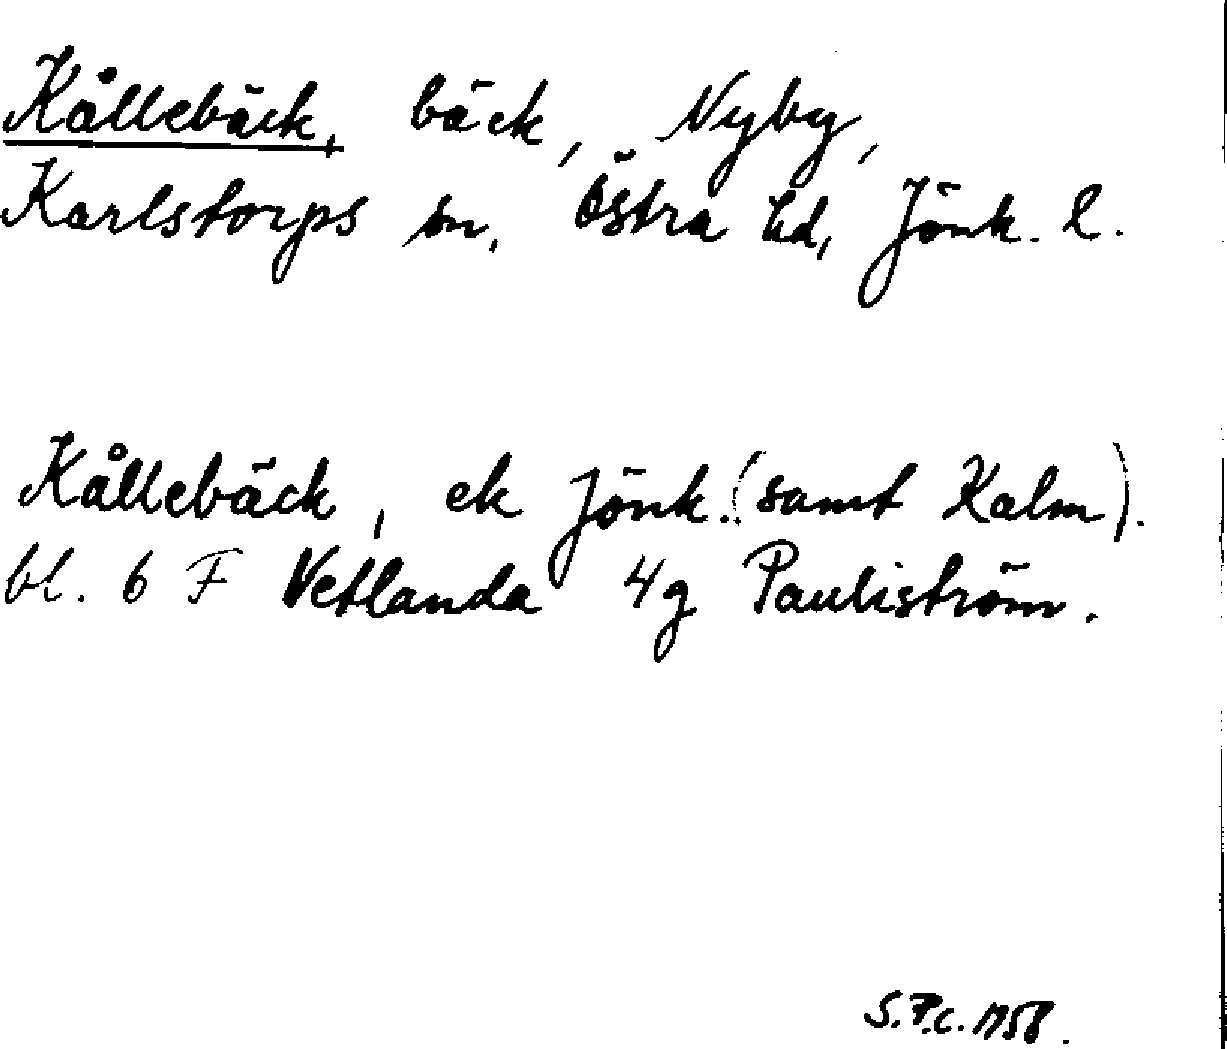 Kållebäck, bäck, Nyby,
Karlstorps sn, Östra hd, Jönk. l.
Kållebäck, ek Jönk. (samt Kalm).
bl. 6 F Vetlanda 4g Pauliström.
S.F.C. 1958.